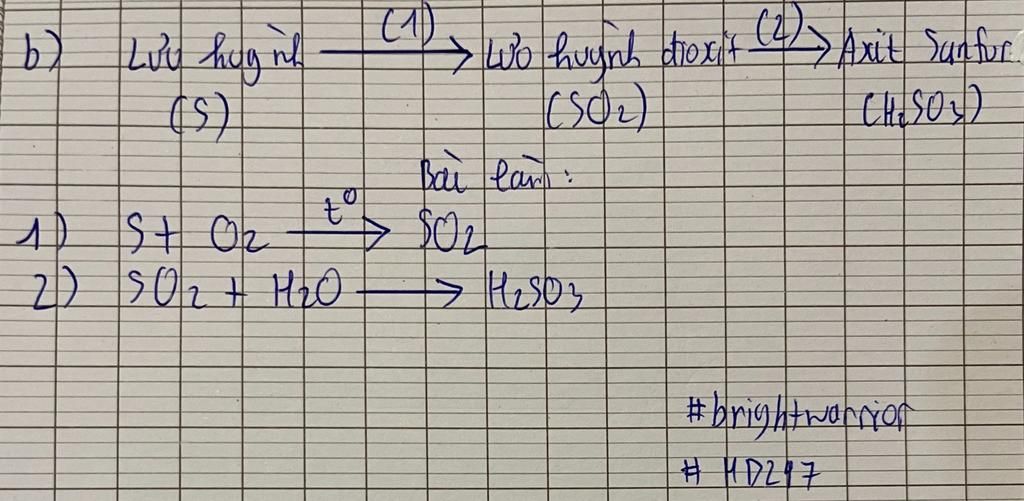 b) Lưu huỳnh (1) → Lưu huỳnh đioxit (2) → Axit Sunfurơ
(S) (SO2) (H2SO3)
Bài làm:
1) S + O2 t° → SO2
2) SO2 + H2O → H2SO3
#brightwarrior
# HD297